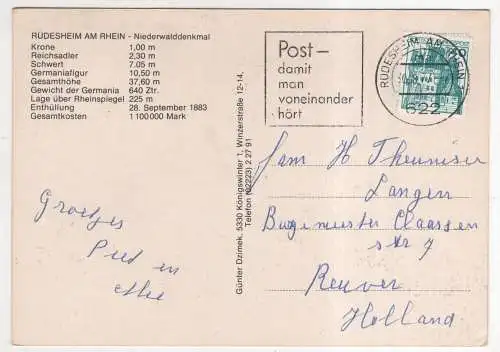 RÜDESHEIM AM RHEIN - Niederwalddenkmal
Krone 1,00 m
Reichsadler 2,30 m
Schwert 7,05 m
Germaniafigur 10,50 m
Gesamthöhe 37,60 m
Gewicht der Germania 640 Ztr.
Lage über Rheinspiegel 225 m
Enthüllung 28. September 1883
Gesamtkosten 1 100 000 Mark
Post –
damit
man
voneinander
hört
RÜDESHEIM AM RHEIN
622
Günter Dzimek, 5330 Königswinter 1, Winzerstraße 12-14,
Telefon (02223) 2 27 91
Groetjes
Piet en
Fam H Theunissen
Langen
Burgemeister Claassen
str 7
Reuver
Holland